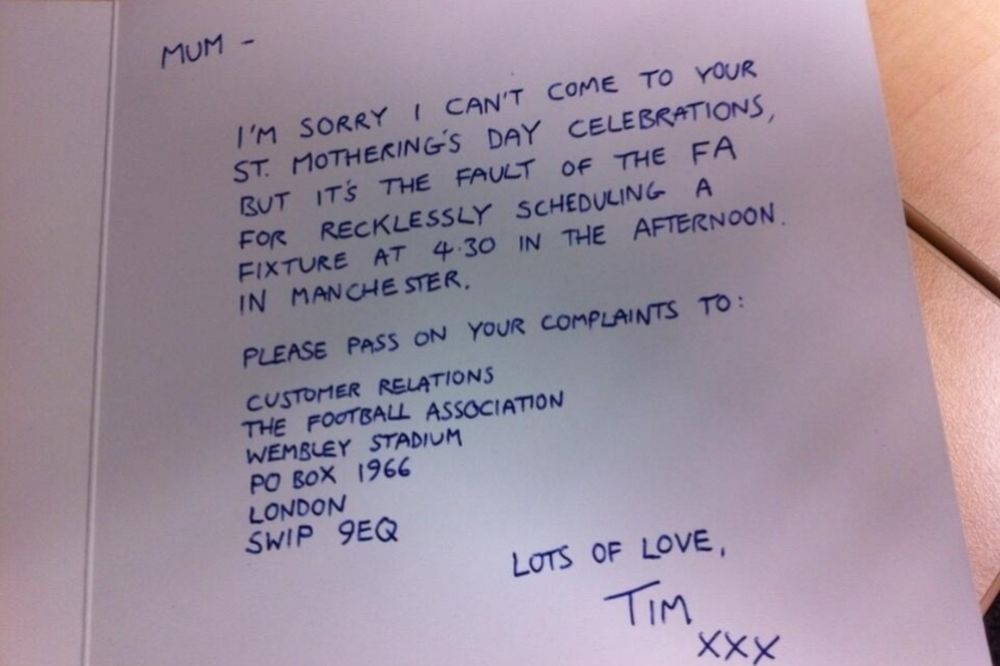 MUM -
I'M SORRY I CAN'T COME TO YOUR
ST. MOTHERING'S DAY CELEBRATIONS,
BUT IT'S THE FAULT OF THE FA
FOR RECKLESSLY SCHEDULING A
FIXTURE AT 4.30 IN THE AFTERNOON.
IN MANCHESTER.
PLEASE PASS ON YOUR COMPLAINTS TO:
CUSTOMER RELATIONS
THE FOOTBALL ASSOCIATION
WEMBLEY STADIUM
PO BOX 1966
LONDON
SW1P 9EQ
LOTS OF LOVE,
TIM
XXX